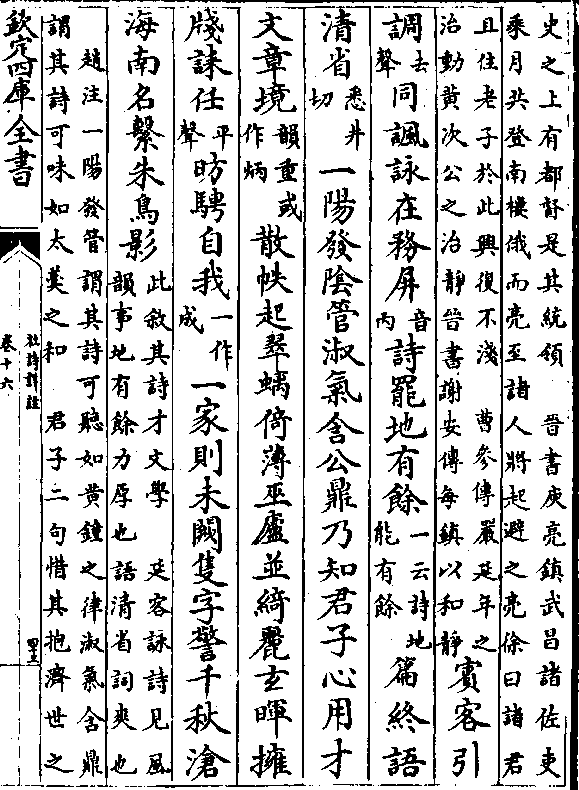 史之上有都督是其統領　晉書庾亮鎮武昌諸佐吏
乘月共登南樓俄而亮至諸人將起避之亮徐曰諸君
且住老子於此興復不淺　曹參傳嚴延年之
治動黃次公之治靜晉書謝安傳每鎮以和靜
賓客引
調去聲同諷詠在務屏音丙詩罷地有餘一云詩地能有餘篇終語
清省悉井切一陽發陰管淑氣含公鼎乃知君子心用才
文章境韻重或作炳散帙起翠螭倚薄巫廬並綺麗玄暉擁
牋誄任平聲昉騁自我一作成一家則未闕隻字警千秋滄
海南名繫朱鳥影此敘其詩才文學　延客詠詩見風
韻事地有餘力厚也語清省詞爽也
趙注一陽發管謂其詩可聽如黃鐘之律淑氣含鼎
謂其詩可味如太羹之和　君子二句惜其抱濟世之
欽定四庫全書
杜詩詳註
卷十六